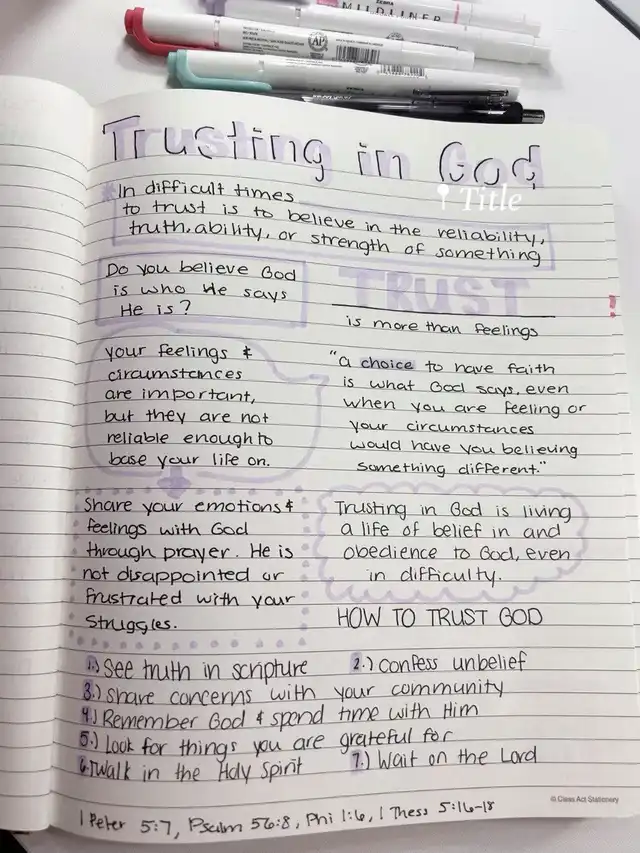 ZEBRA
MILDLINER
AP
ZEBRA
Trusting in God
Title
*In difficult times
to trust is to believe in the reliability,
truth, ability, or strength of something
Do you believe God
is who He says
He is?
TRUST
is more than feelings
your feelings &
circumstances
are important,
but they are not
reliable enough to
base your life on.
"a choice to have faith
is what God says, even
when you are feeling or
your circumstances
would have you believing
something different."
Share your emotions &
feelings with God
through prayer. He is
not disappointed or
frustrated with your
struggles.
Trusting in God is living
a life of belief in and
obedience to God, even
in difficulty.
HOW TO TRUST GOD
1.) See truth in scripture
2.) confess unbelief
3.) Share concerns with your community
4.) Remember God & spend time with Him
5.) Look for things you are grateful for
6.) Walk in the Holy Spirit
7.) Wait on the Lord
© Class Act Stationery
1 Peter 5:7, Psalm 56:8, Phi 1:6, 1 Thess 5:16-18